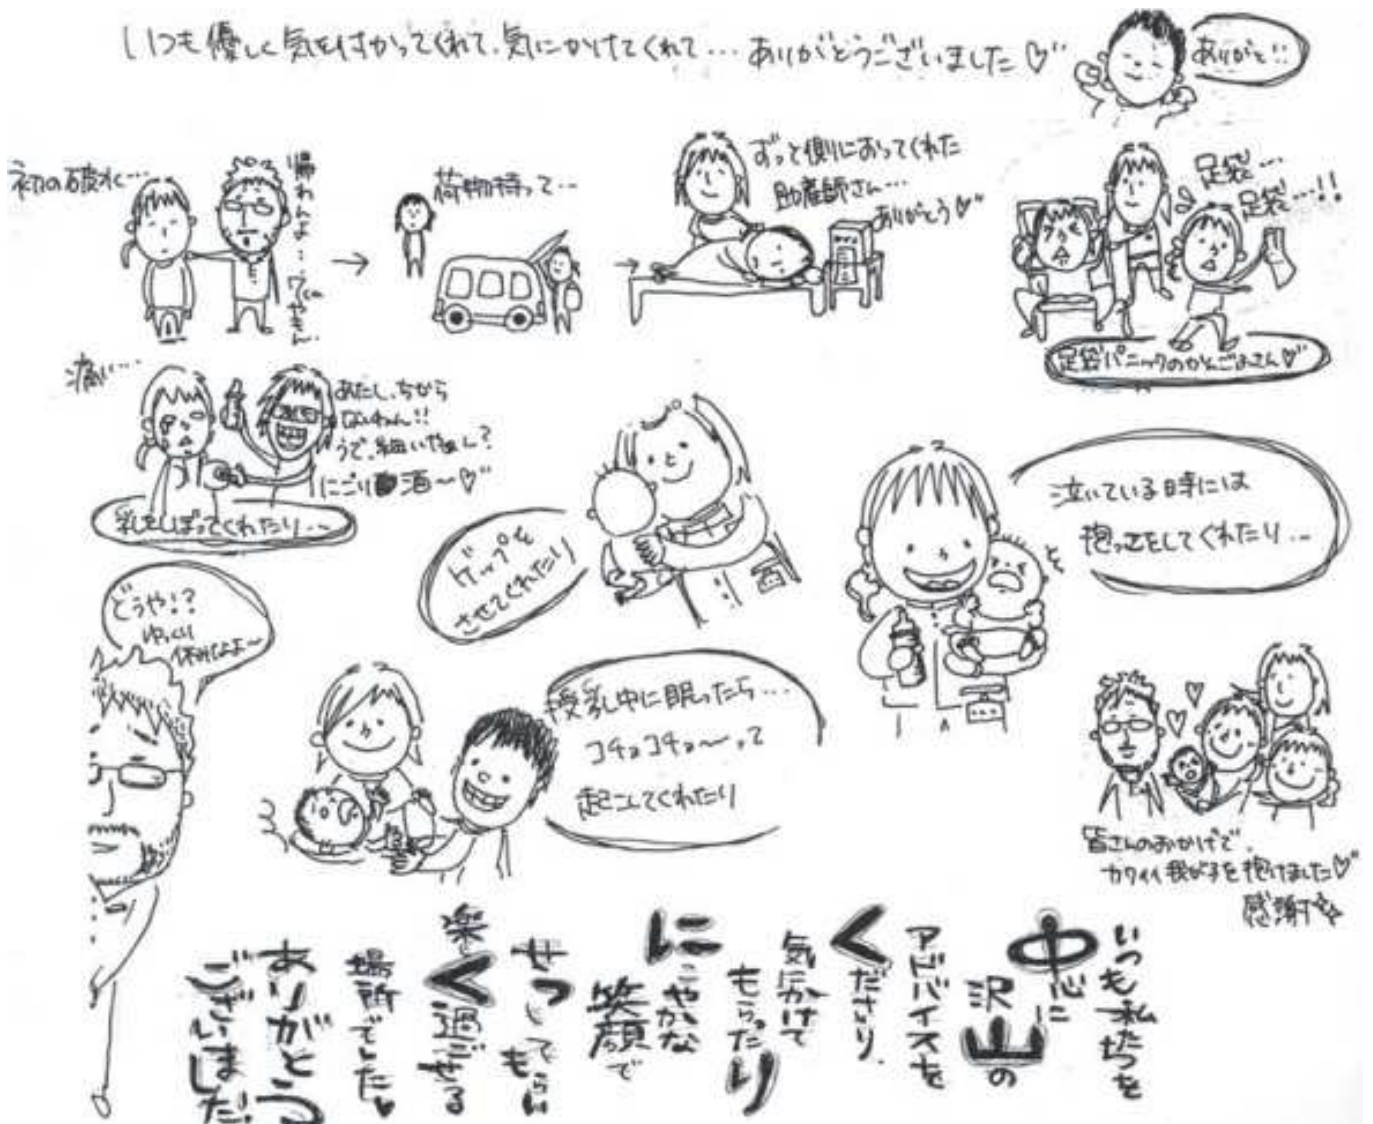 いつも優しく気を付かってくれて、気にかけてくれて…ありがとうございました♡
ありがと
初の破水…
帰れんよ…
荷物持って…
ずっと側におってくれた
助産師さん…
ありがとう♡
足袋…
足袋…!!
足袋パニックのかんごふさん♡
痛い…
あたし、ちから
ないわん!!
うで、細いやん?
にごり酒～♡
乳をしぼってくれたり…
ゲップを
させてくれたり
泣いている時には
抱っこをしてくれたり…
どうや!?
ゆっくり
休みなよ～
授乳中に眠ったら…
コチョコチョ～って
起こしてくれたり
皆さんのおかげで、
カワイイ我が子を抱けました♡
感謝
いつも私たちを
中心に
沢山の
アドバイスを
くださり、
気にかけて
もらったり
にこやかな
笑顔で
せっしてもらい
楽く過ごせる
場所でした♥
ありがとう
ございました!